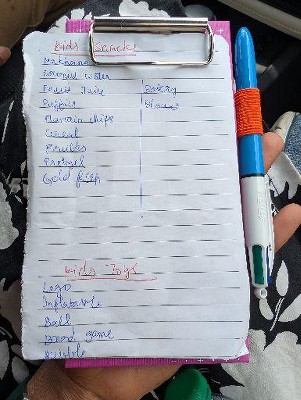 Kids Snacks
Makhana
Coconut water
Fruit Juice
Puffies
Banana chips
Cereal
Fruits
Pretzel
Gold fish
Bakery
Kids Toys
Lego
Inflatable
Ball
Board game